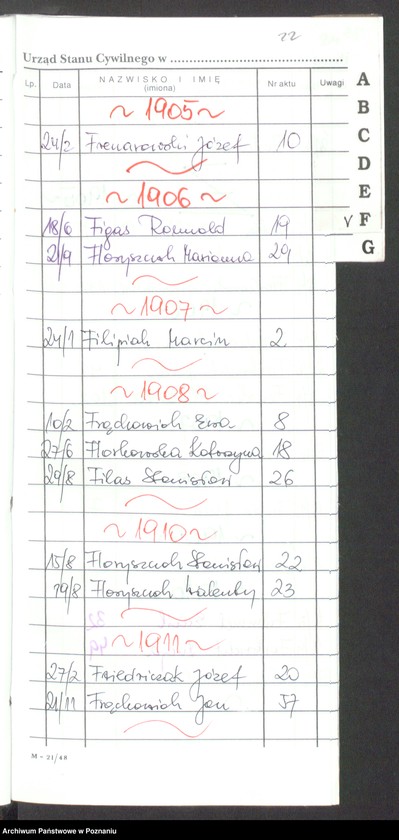 22
Urząd Stanu Cywilnego w
Lp. Data NAZWISKO I IMIĘ (imiona) Nr aktu Uwagi
A
~ 1905 ~
B
24/2 Józef 10
C
D
~ 1906 ~
E
18/6 Figas Romuald 19
V F
21/9 Floryszczak Marianna 29
G
~ 1907 ~
24/1 Filipiak Marcin 2
~ 1908 ~
10/2 Frąckowiak Ewa 8
27/6 Florkowska Katarzyna 18
29/8 Filas Stanisław 26
~ 1910 ~
15/8 Stanisław 22
19/8 Walenty 23
~ 1911 ~
27/2 Friedriczak Józef 20
21/11 Frąckowiak Jan 57
M - 21/48
Archiwum Państwowe w Poznaniu